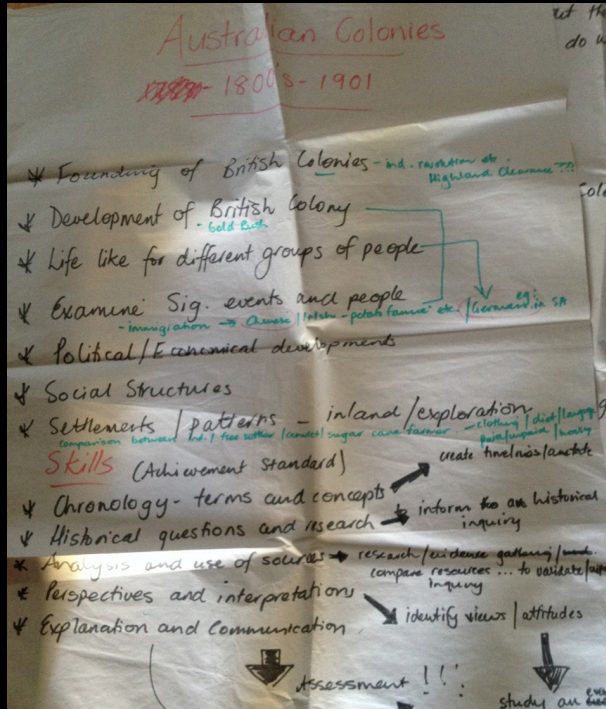 Australian Colonies
- 1800's - 1901
do
* Founding of British Colonies - ind. revolution etc
Highland Clearance ???
* Development of British Colony
- Gold Rush
* Life like for different groups of people
* Examine Sig. events and people
eg:
- immigration → Chinese / Irish - potato famine etc. / Germans in SA
* Political / Economical developments
* Social Structures
* Settlements / patterns - inland / exploration
comparison between ind. / free settler / convict / sugar cane farmer - clothing / diet /
paid/unpaid /
Skills (Achievement Standard)
create timelines/annotate
* Chronology - terms and concepts
* Historical questions and research → inform an historical
inquiry
* Analysis and use of sources → research/evidence gathering/
compare resources ... to validate/
inquiry
* Perspectives and interpretations
identify views / attitudes
* Explanation and Communication
Assessment !!!
study an